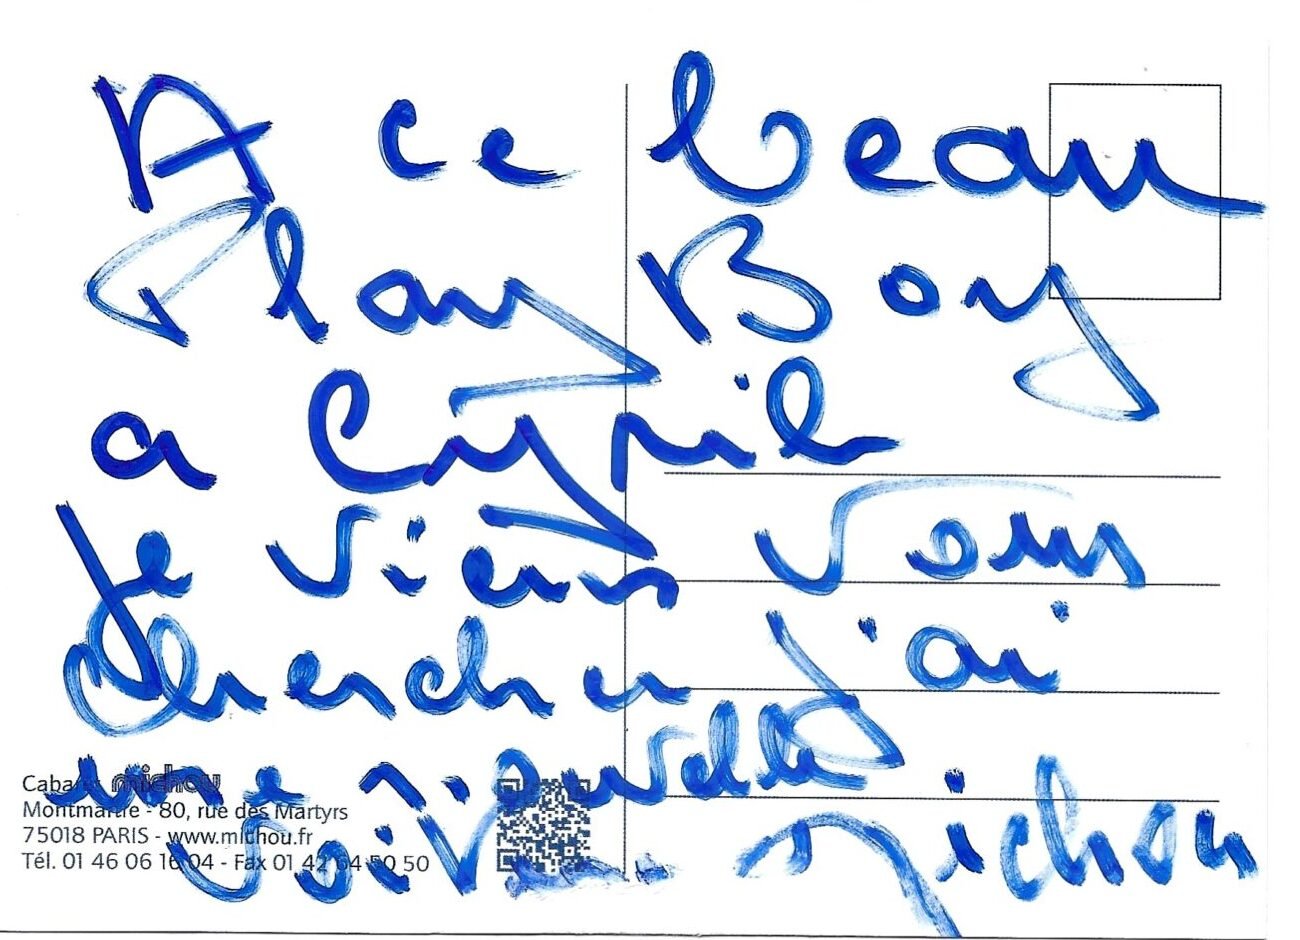 A ce beau
Play Boy
a Cyril
je viens vous
chercher j'ai
une nouvelle
Voiture Michou
Cabaret michou
Montmartre - 80, rue des Martyrs
75018 PARIS - www.michou.fr
Tél. 01 46 06 16 04 - Fax 01 42 64 50 50